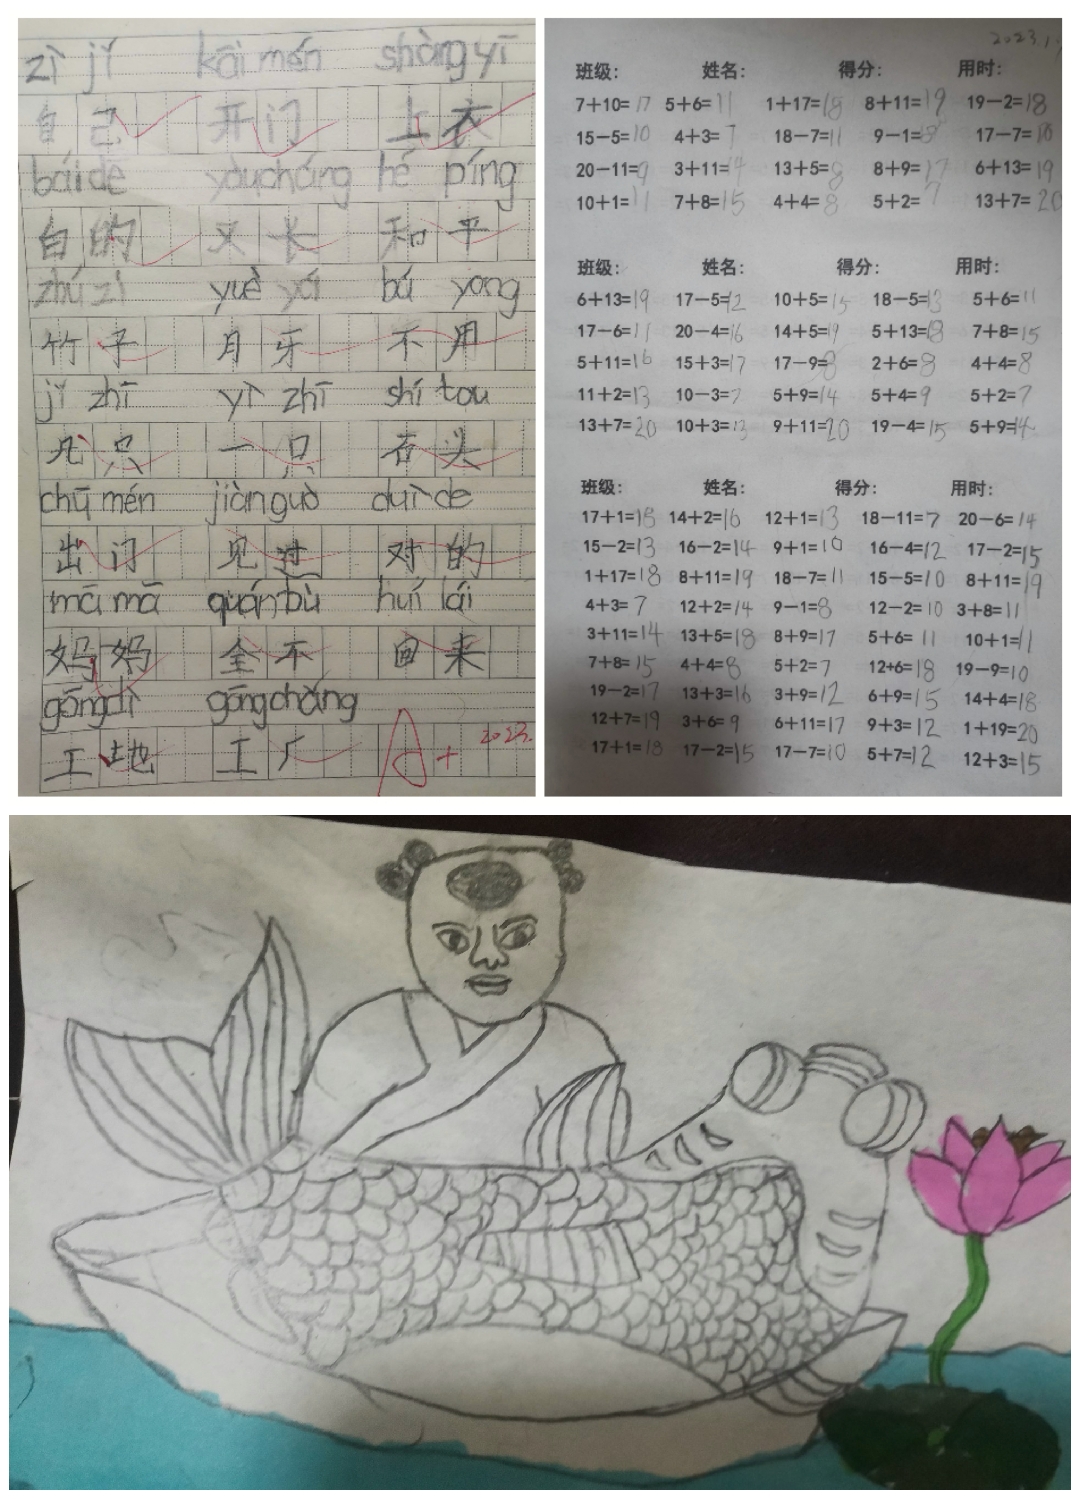 zì jǐ kāi mén shàng yī
自己 开门 上衣
bái de yòu cháng hé píng
白的 又长 和平
zhú zi yuè yá bú yong
竹子 月牙 不用
jǐ zhī yì zhī shí tou
几只 一只 石头
chū mén jiàn guò duì de
出门 见过 对的
mā mā quán bù huí lái
妈妈 全不 回来
gōng dì gōng chǎng
工地 工厂
A+ 2023.
2023.1
班级: 姓名: 得分: 用时:
7+10=17 5+6=11 1+17=18 8+11=19 19-2=18
15-5=10 4+3=7 18-7=11 9-1=8 17-7=10
20-11=9 3+11=14 13+5=8 8+9=17 6+13=19
10+1=11 7+8=15 4+4=8 5+2=7 13+7=20
班级: 姓名: 得分: 用时:
6+13=19 17-5=12 10+5=15 18-5=13 5+6=11
17-6=11 20-4=16 14+5=19 5+13=18 7+8=15
5+11=16 15+3=17 17-9=8 2+6=8 4+4=8
11+2=13 10-3=7 5+9=14 5+4=9 5+2=7
13+7=20 10+3=13 9+11=20 19-4=15 5+9=14
班级: 姓名: 得分: 用时:
17+1=15 14+2=16 12+1=13 18-11=7 20-6=14
15-2=13 16-2=14 9+1=10 16-4=12 17-2=15
1+17=18 8+11=19 18-7=11 15-5=10 8+11=19
4+3=7 12+2=14 9-1=8 12-2=10 3+8=11
3+11=14 13+5=18 8+9=17 5+6=11 10+1=11
7+8=15 4+4=8 5+2=7 12+6=18 19-9=10
19-2=17 13+3=16 3+9=12 6+9=15 14+4=18
12+7=19 3+6=9 6+11=17 9+3=12 1+19=20
17+1=18 17-2=15 17-7=10 5+7=12 12+3=15